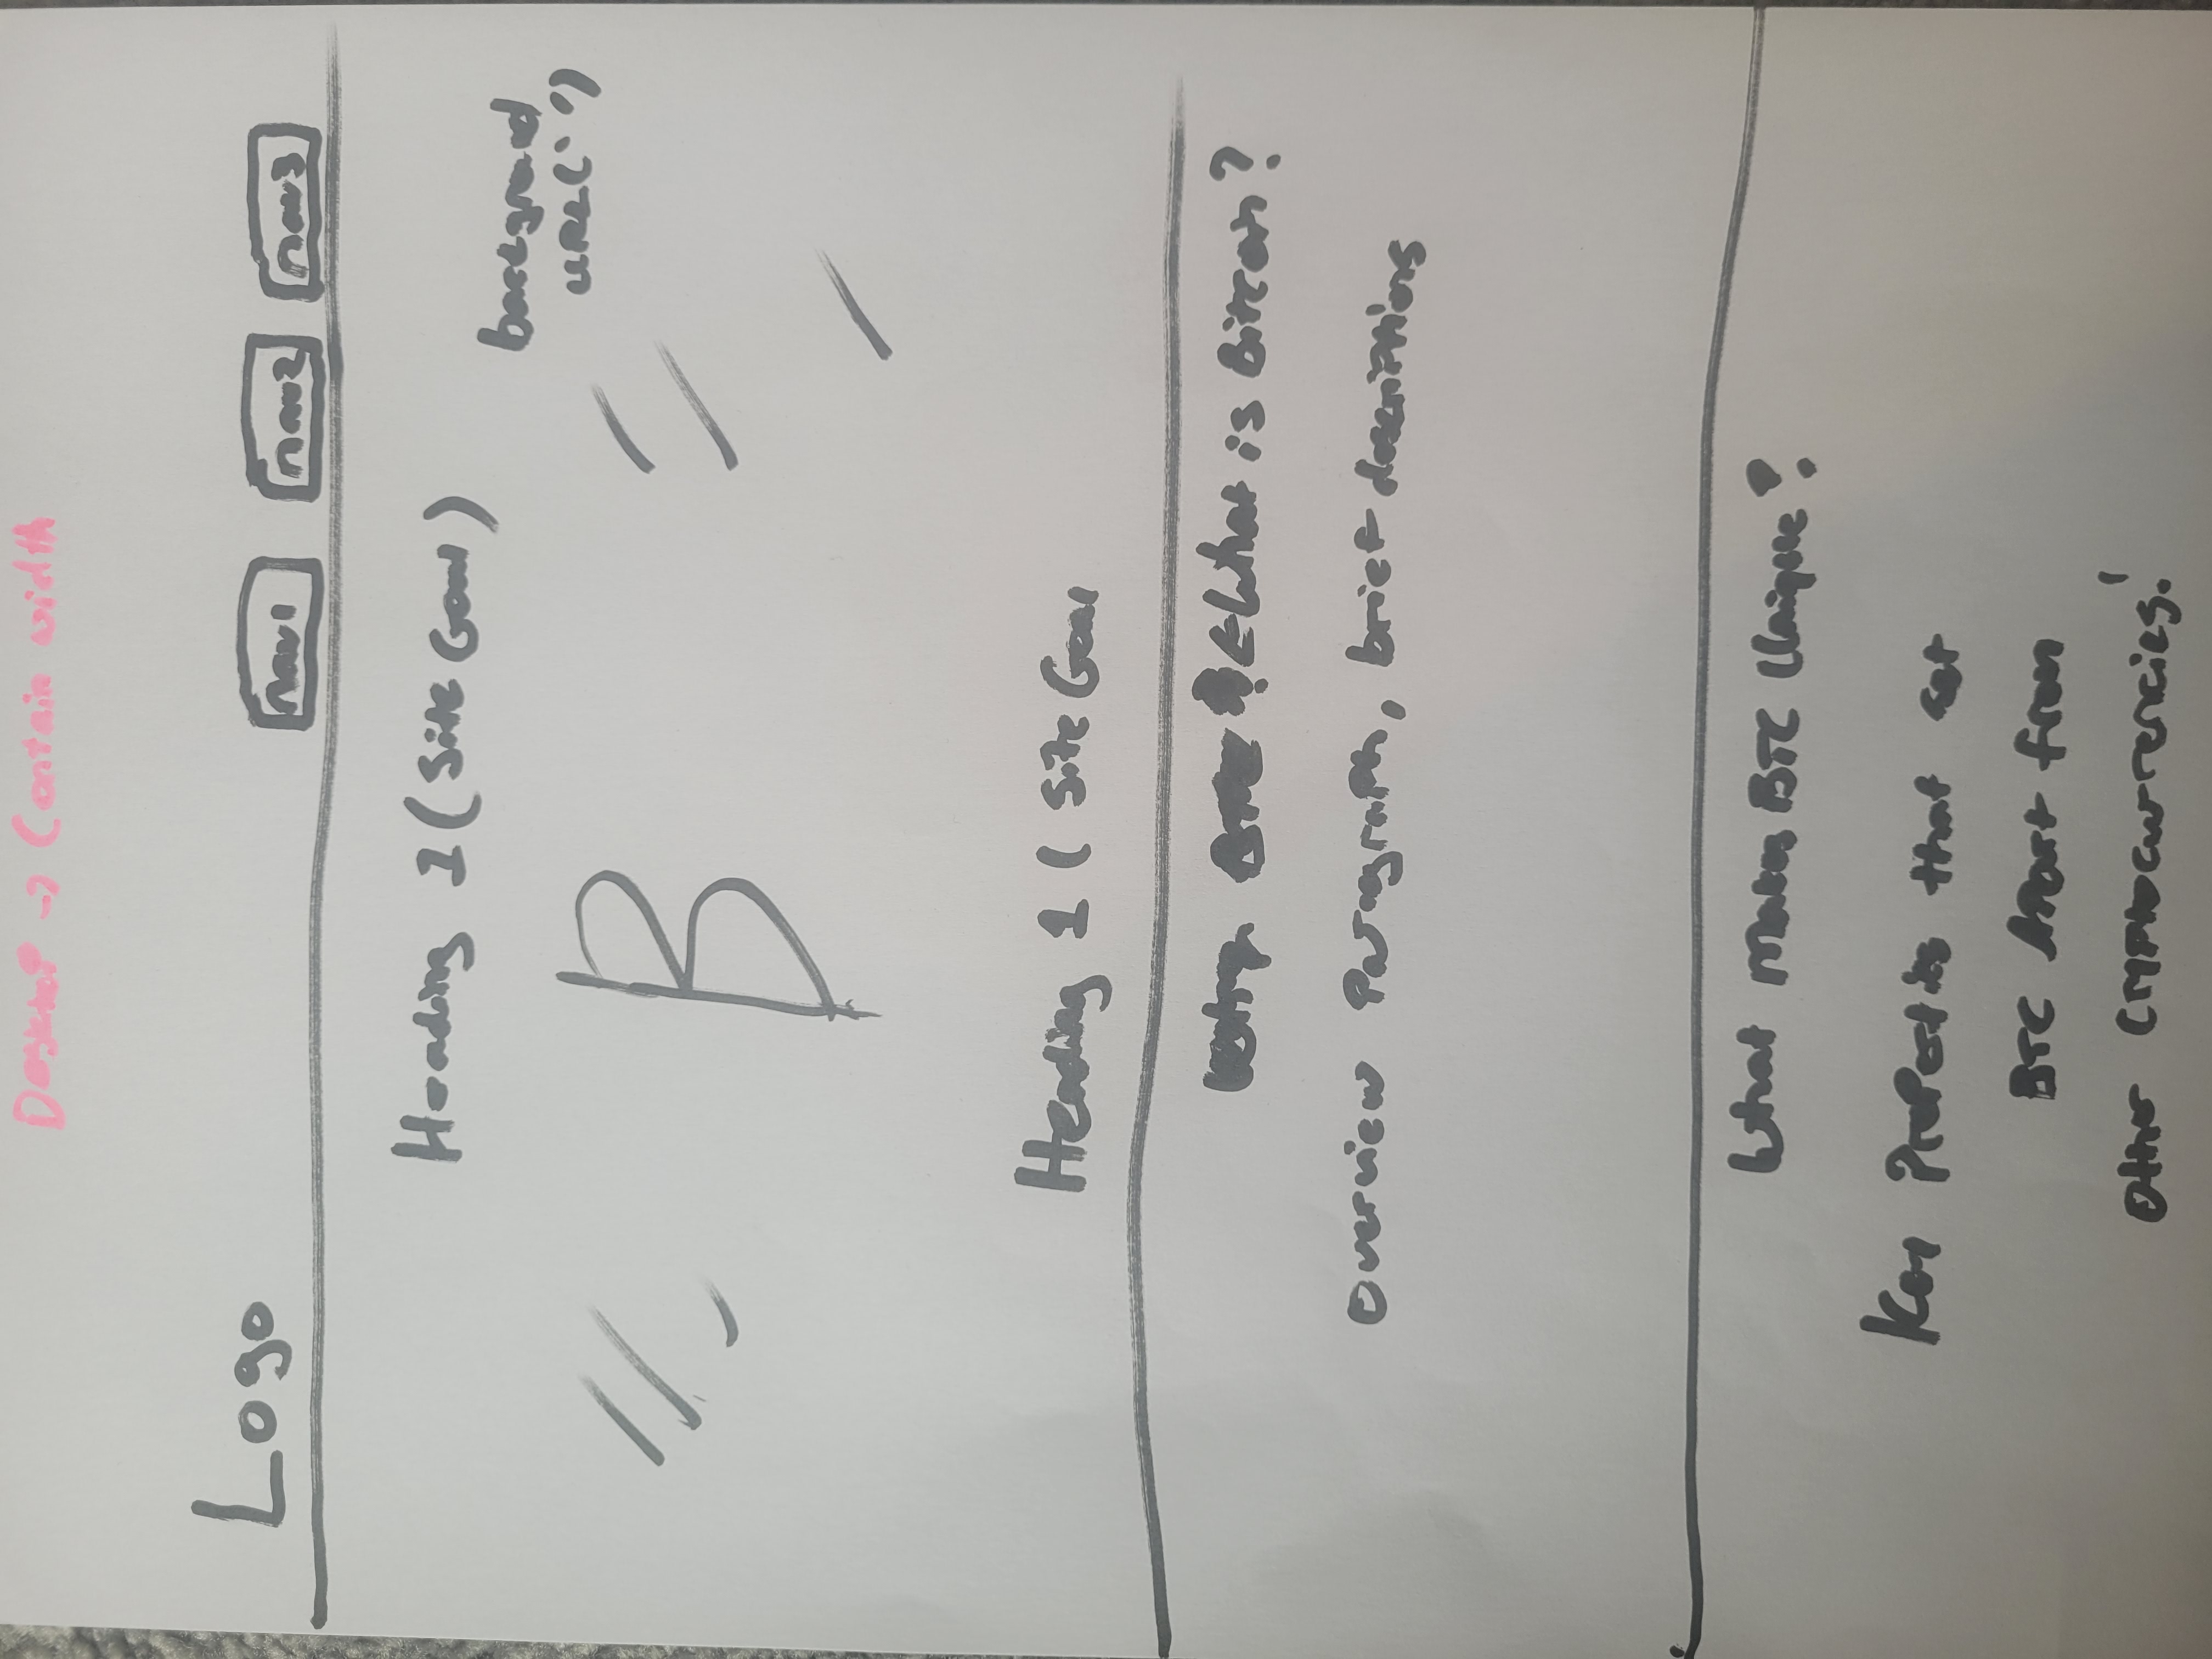 Desktop -> Contain width
Logo
nav1 nav2 nav3
Heading 1 (Site Goal)
background
URL(' ')
B
Heading 1 ( Site Goal
What is Bitcoin?
Overview Paragraph, brief descriptions
What Makes BTC Unique?
Key Properties that set
BTC Apart from
Other Cryptocurrencies!